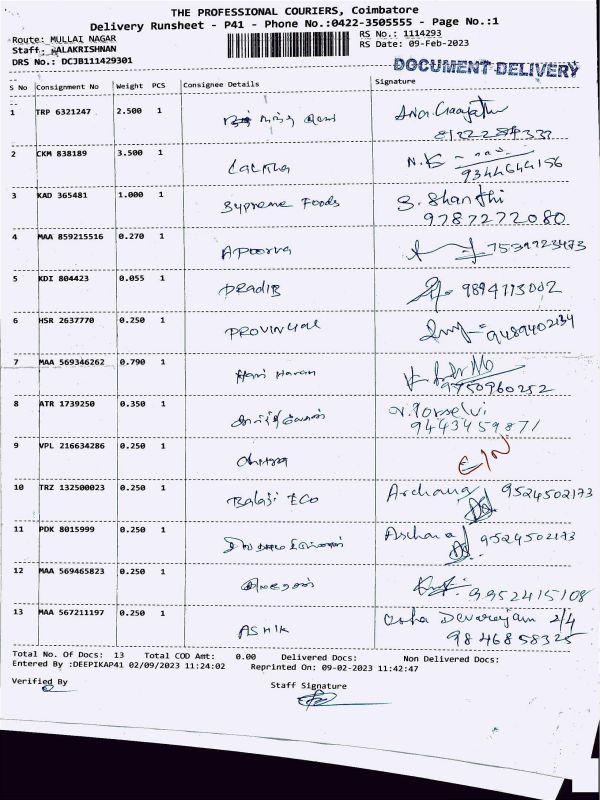 THE PROFESSIONAL COURIERS, Coimbatore
Delivery Runsheet - P41 - Phone No.:0422-3505555 - Page No.:1
Route: MULLAI NAGAR
RS No.: 1114293
Staff: BALAKRISHNAN
RS Date: 09-Feb-2023
DRS No.: DCJB111429301
DOCUMENT DELIVERY
S No Consignment No Weight PCS Consignee Details Signature
1 TRP 6321247 2.500 1
2 CKM 838189 3.500 1 Lalitha
9344644156
3 KAD 365481 1.000 1 Supreme Foods S. Shanthi
9787272080
4 MAA 859215516 0.270 1 Apoorva 7539723473
5 KDI 804423 0.055 1 Pradib 9894773002
6 HSR 2637770 0.250 1 Provincial 9489402134
7 MAA 569346262 0.790 1 Hari Haran
9750960252
8 ATR 1739250 0.350 1
9443459871
9 VPL 216634286 0.250 1 Chitra
10 TRZ 132500023 0.250 1 Balaji ECO Archana 9524502173
11 PDK 8015999 0.250 1 Archana 9524502173
12 MAA 569465823 0.250 1 9952415108
13 MAA 567211197 0.250 1 ASHIK Usha Devarajan 2/4
9846858325
Total No. Of Docs: 13 Total COD Amt: 0.00 Delivered Docs: Non Delivered Docs:
Entered By :DEEPIKAP41 02/09/2023 11:24:02 Reprinted On: 09-02-2023 11:42:47
Verified By
Staff Signature